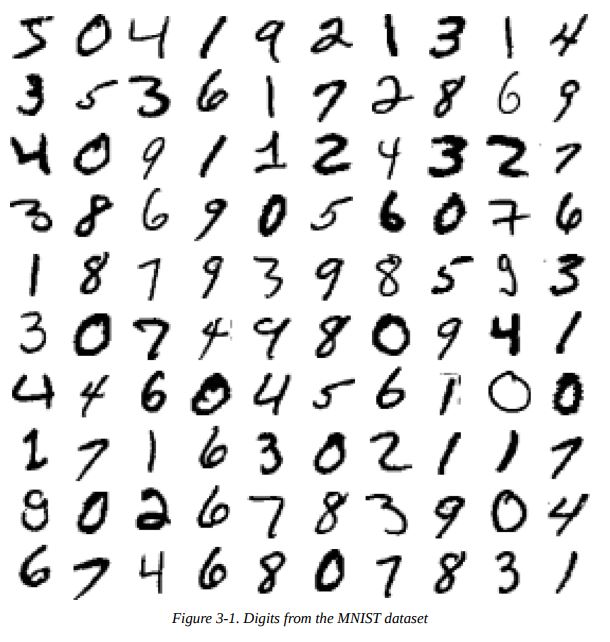 5 0 4 1 9 2 1 3 1 4
3 5 3 6 1 7 2 8 6 9
4 0 9 1 1 2 4 3 2 7
3 8 6 9 0 5 6 0 7 6
1 8 7 9 3 9 8 5 9 3
3 0 7 4 9 8 0 9 4 1
4 4 6 0 4 5 6 1 0 0
1 7 1 6 3 0 2 1 1 7
9 0 2 6 7 8 3 9 0 4
6 7 4 6 8 0 7 8 3 1
Figure 3-1. Digits from the MNIST dataset